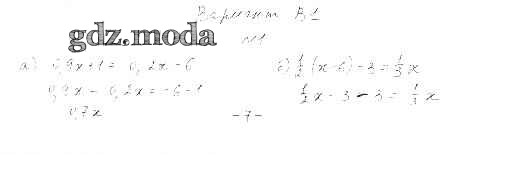 Вариант В1
gdz.moda
№1
а) 0,9x+1 = 0,2x-6
0,9x - 0,2x = -6-1
0,7x
б) 1/2 (x-6)-3 = 1/3 x
1/2 x - 3 - 3 = 1/3 x
-7-